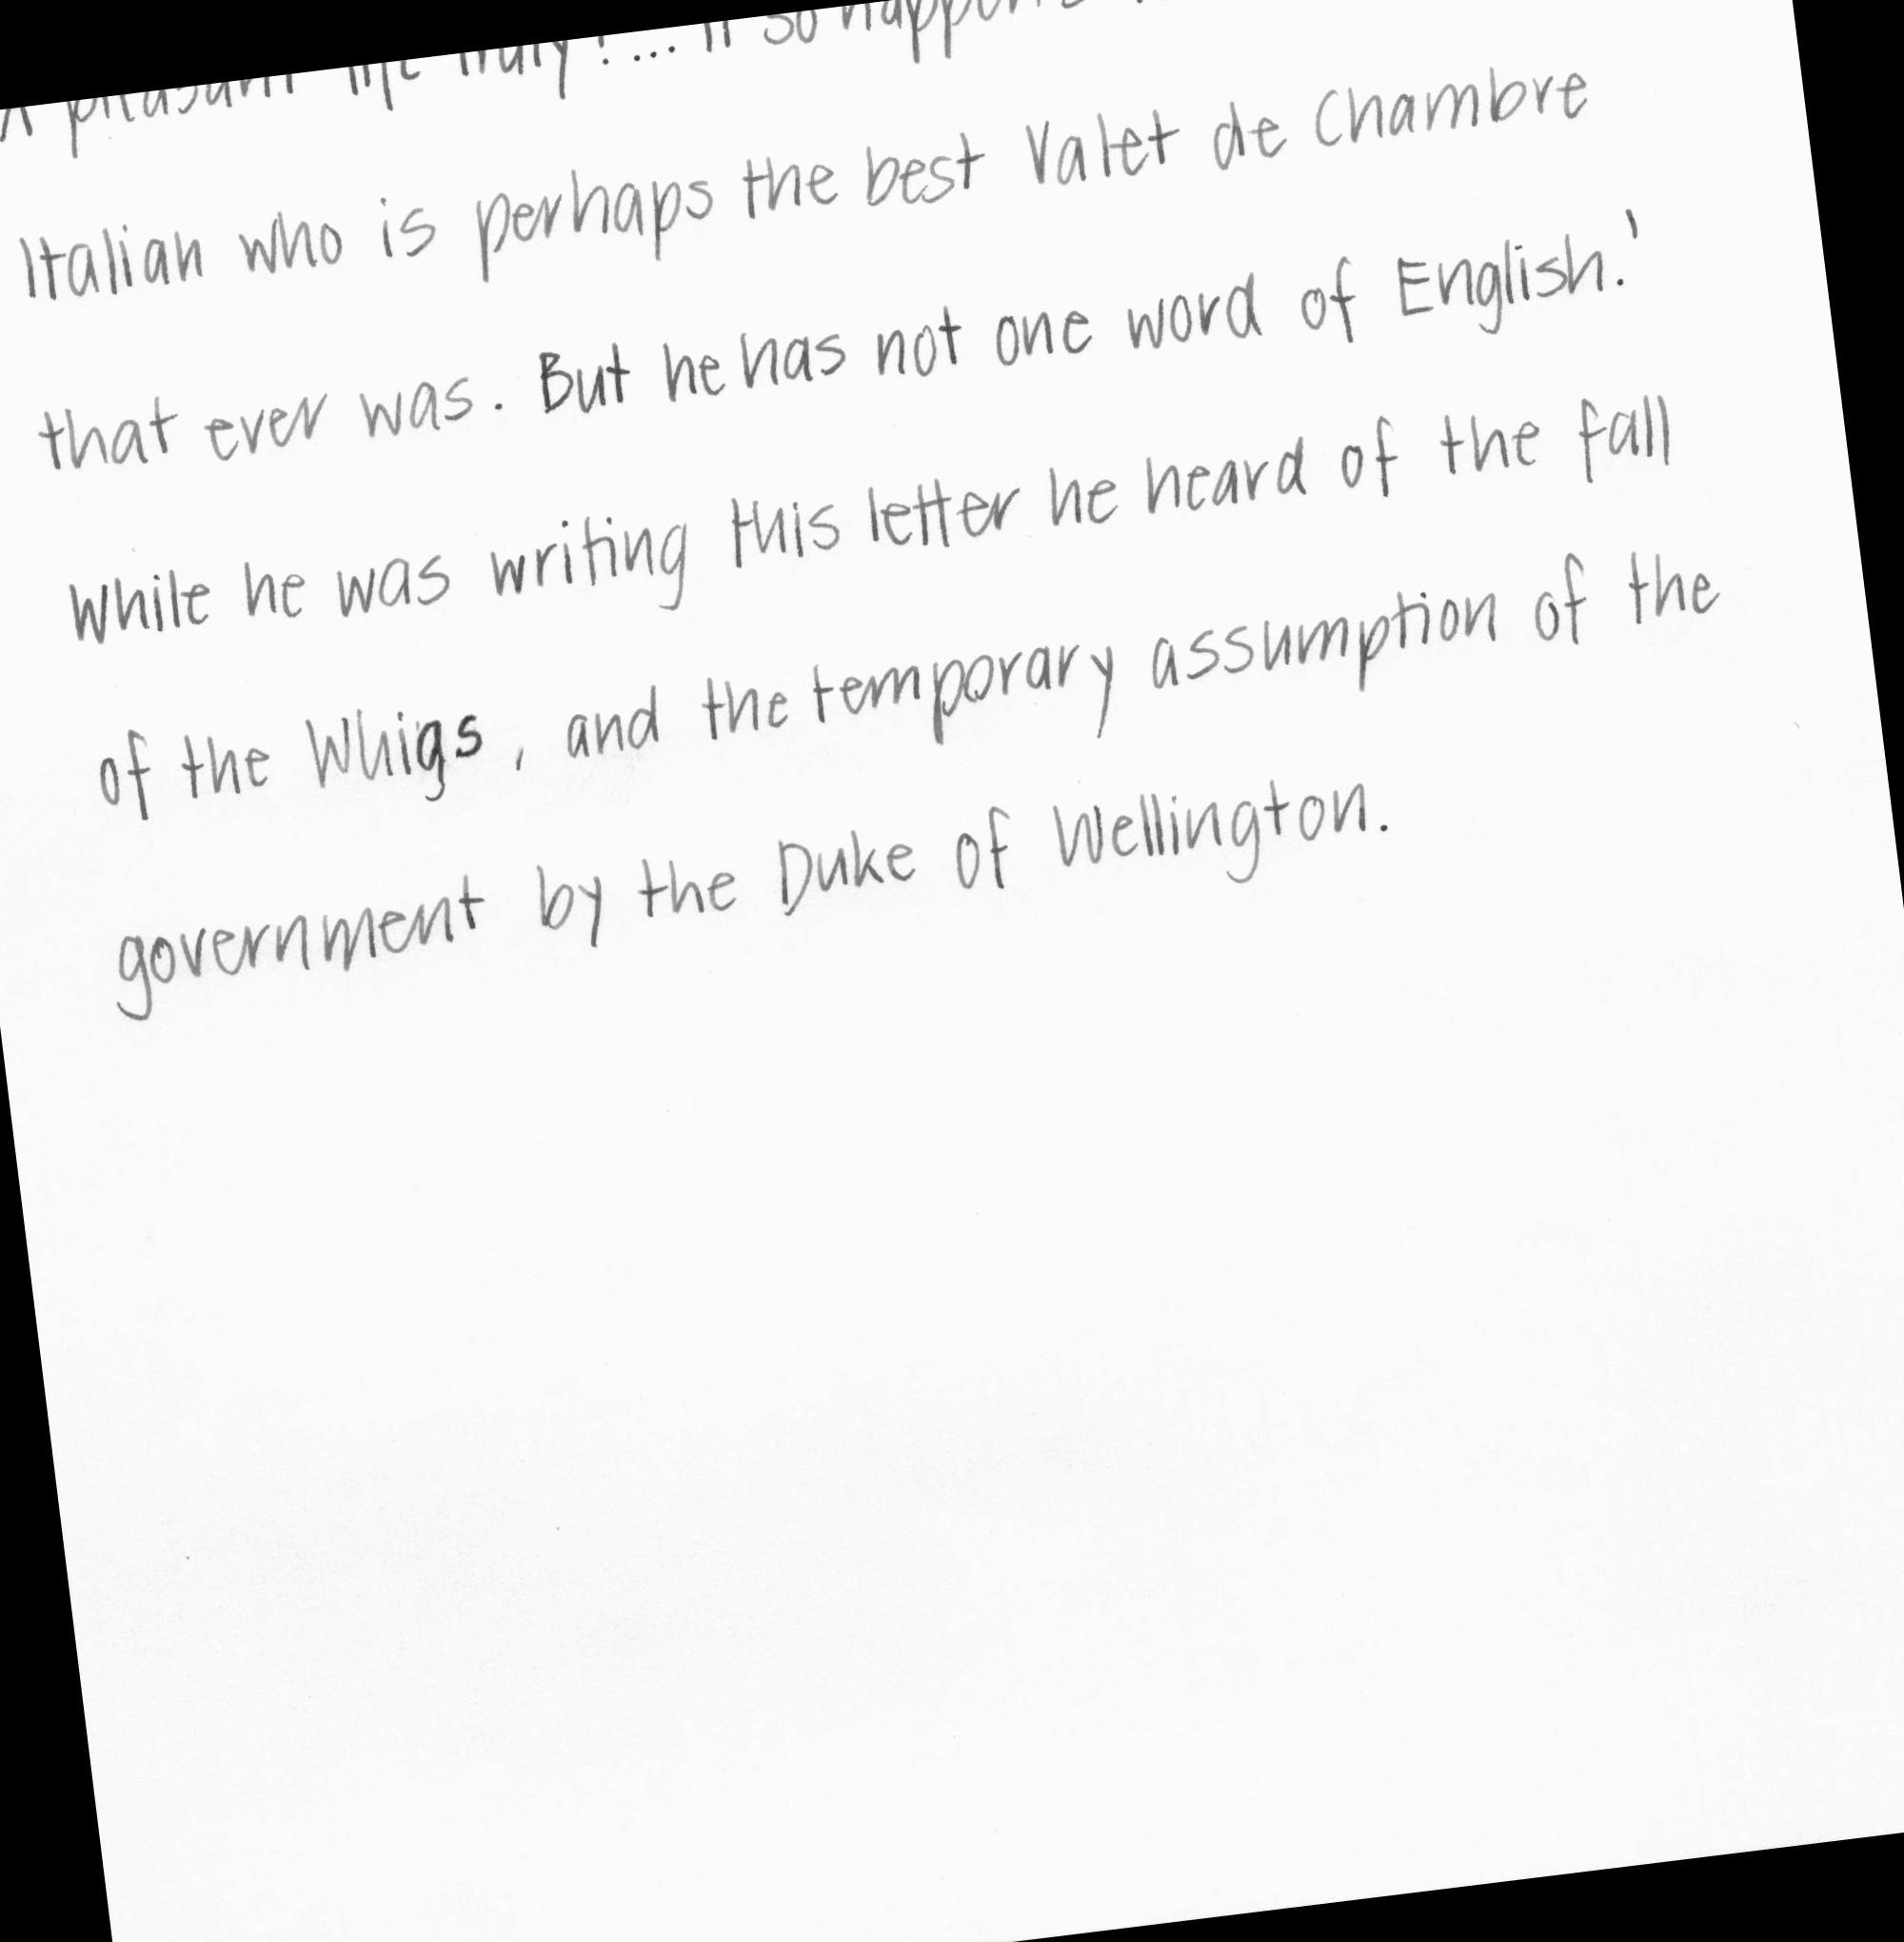 A pleasant life truly! ... It so happens
Italian who is perhaps the best Valet de Chambre
that ever was. But he has not one word of English.'
While he was writing this letter he heard of the fall
of the Whigs, and the temporary assumption of the
government by the Duke of Wellington.